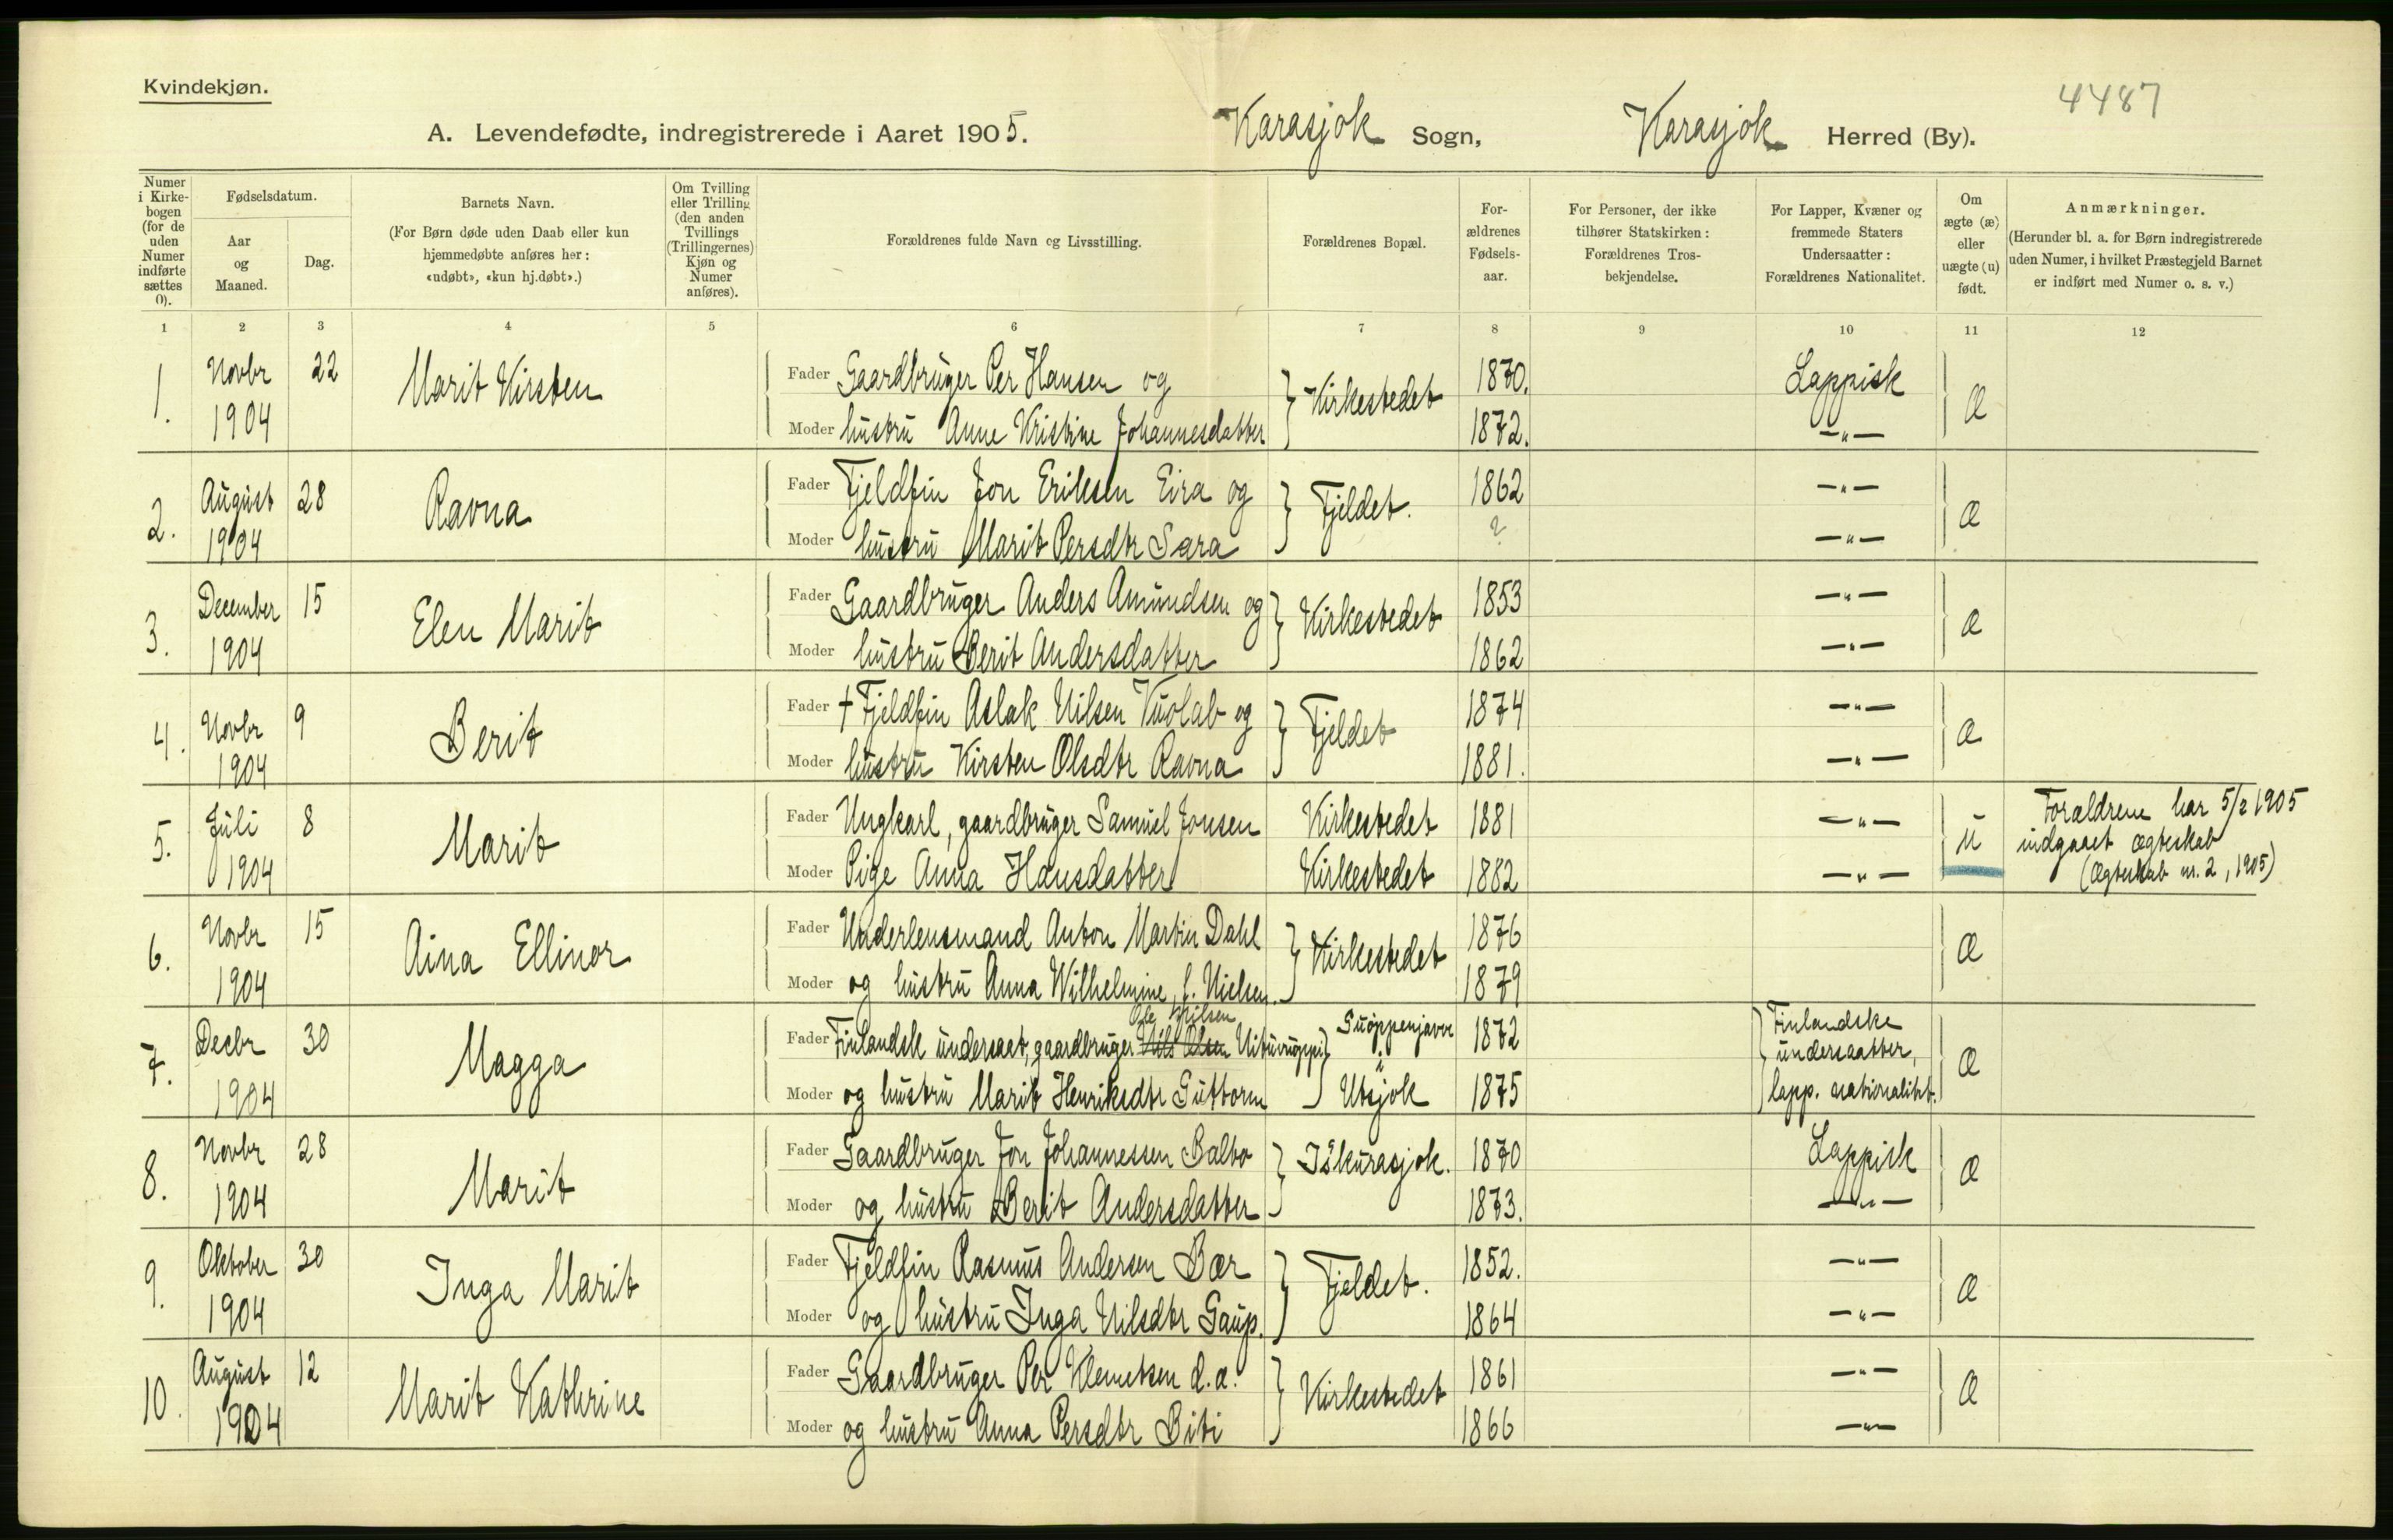 Kvindekjøn.
4487
A. Levendefødte, indregistrerede i Aaret 1905. Karasjok Sogn, Karasjok Herred (By).
Numer i Kirkebogen (for de uden Numer indførte sættes 0).
Fødselsdatum.
Aar og Maaned.
Dag.
Barnets Navn.
(For Børn døde uden Daab eller kun hjemmedøbte anføres her: «udøbt», «kun hj.døbt».)
Om Tvilling eller Trilling (den anden Tvillings (Trillingernes) Kjøn og Numer anføres).
Forældrenes fulde Navn og Livsstilling.
Forældrenes Bopæl.
Forældrenes Fødselsaar.
For Personer, der ikke tilhører Statskirken: Forældrenes Trosbekjendelse.
For Lapper, Kvæner og fremmede Staters Undersaatter: Forældrenes Nationalitet.
Om ægte (æ) eller uægte (u) født.
Anmærkninger.
(Herunder bl. a. for Børn indregistrerede uden Numer, i hvilket Præstegjeld Barnet er indført med Numer o. s. v.)
1 2 3 4 5 6 7 8 9 10 11 12
1. Novbr 1904 22 Marit Kirsten
Fader Gaardbruger Per Hansen og Kirkestedet 1870. Lappisk æ
Moder hustru Anne Kristine Johannesdatter 1872. —"—
2. August 1904 28 Ravna
Fader Fjeldfin Jon Eriksen Eira og Fjeldet. 1862 —"— æ
Moder hustru Marit Persdtr Sara ? —"—
3. December 1904 15 Elen Marit
Fader Gaardbruger Anders Amundsen og Kirkestedet 1853 —"— æ
Moder hustru Berit Andersdatter 1862 —"—
4. Novbr 1904 9 Berit
Fader † Fjeldfin Aslak Nilsen Vuolab og Fjeldet 1874 —"— æ
Moder hustru Kirsten Olsdtr Ravna 1881. —"—
5. Juli 1904 8 Marit
Fader Ungkarl, gaardbruger Samuel Jonsen Kirkestedet 1881 —"— u
Moder Pige Anna Hansdatter Kirkestedet 1882 —"—
Forældrene har 5/2 1905
indgaaet ægteskab
(Ægteskab nr. 2, 1905)
6. Novbr 1904 15 Aina Ellinor
Fader Underlensmand Anton Martin Dahl Kirkestedet 1876 æ
Moder og hustru Anna Wilhelmine, f. Nielsen. 1879
7. Decbr 1904 30 Magga
Ole Nilsen
Fader Finlandsk undersaat, gaardbruger Nils Olsen Suoppenjavre i 1872 Finlandske undersaatter, æ
Moder og hustru Marit Henriksdtr Guttorm Utsjok 1875 lapp. nationalitet.
8. Novbr 1904 28 Marit
Fader Gaardbruger Jon Johannessen Balto Iskurasjok. 1870 Lappisk æ
Moder og hustru Berit Andersdatter 1873. —"—
9. Oktober 1904 30 Inga Marit
Fader Fjeldfin Rasmus Andersen Bær Fjeldet. 1852. —"— æ
Moder og hustru Inga Nilsdtr Gaup. 1864 —"—
10. August 1904 12 Marit Kathrine
Fader Gaardbruger Per Klemetsen d.æ. Kirkestedet 1861 —"— æ
Moder og hustru Anna Persdtr Biti 1866 —"—